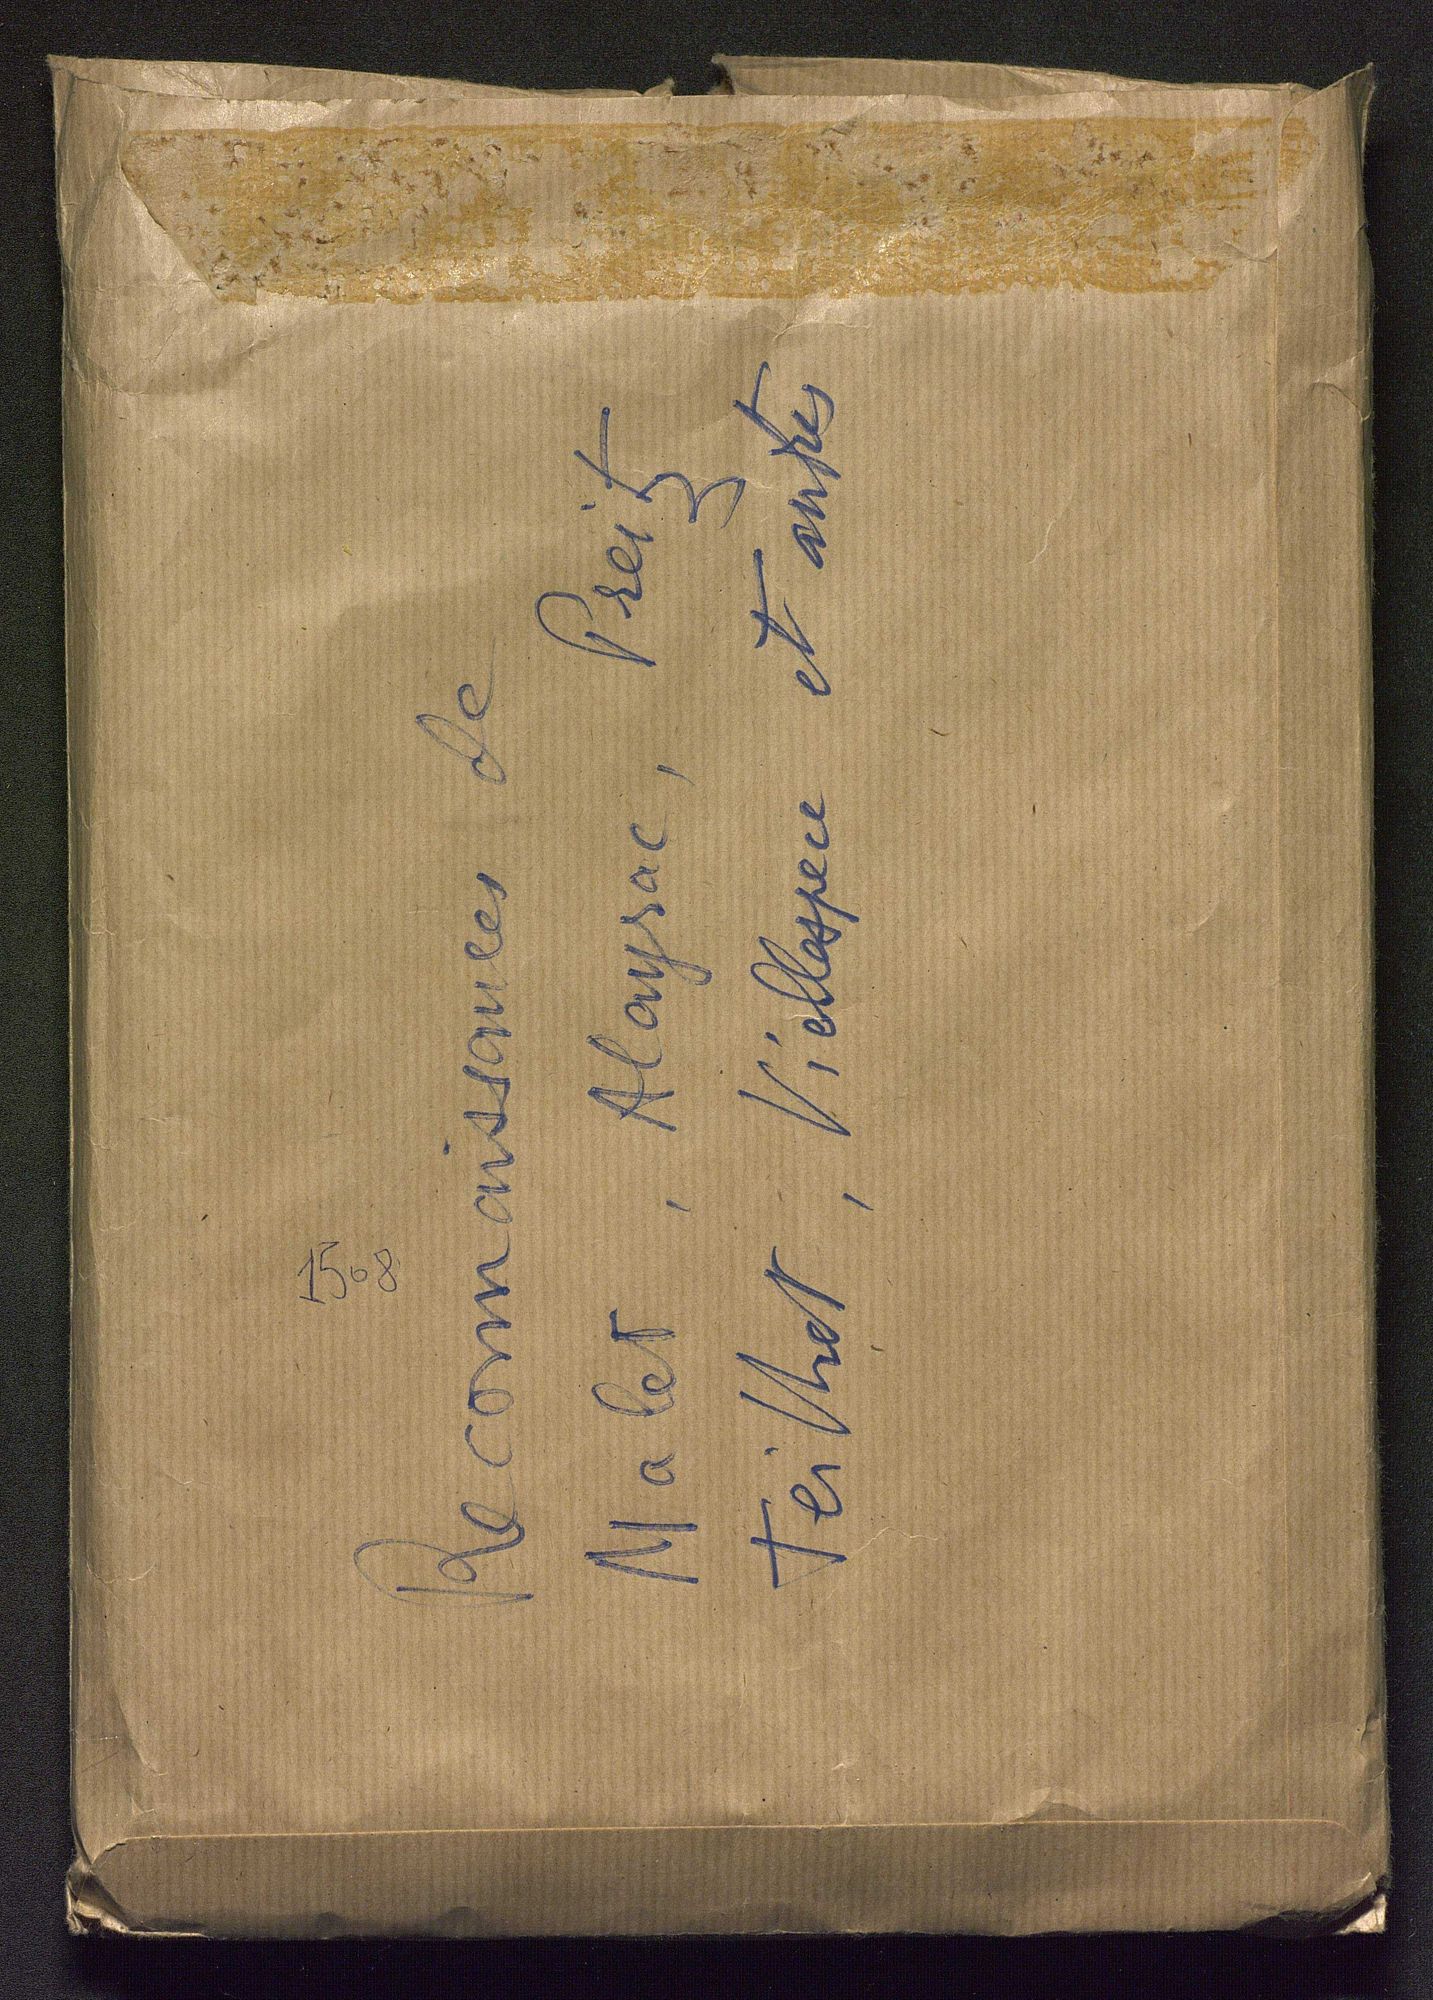 1508
Reconnaissances de
Malet, Alaysac, Preitz
Teilhet, Viellespece et autres